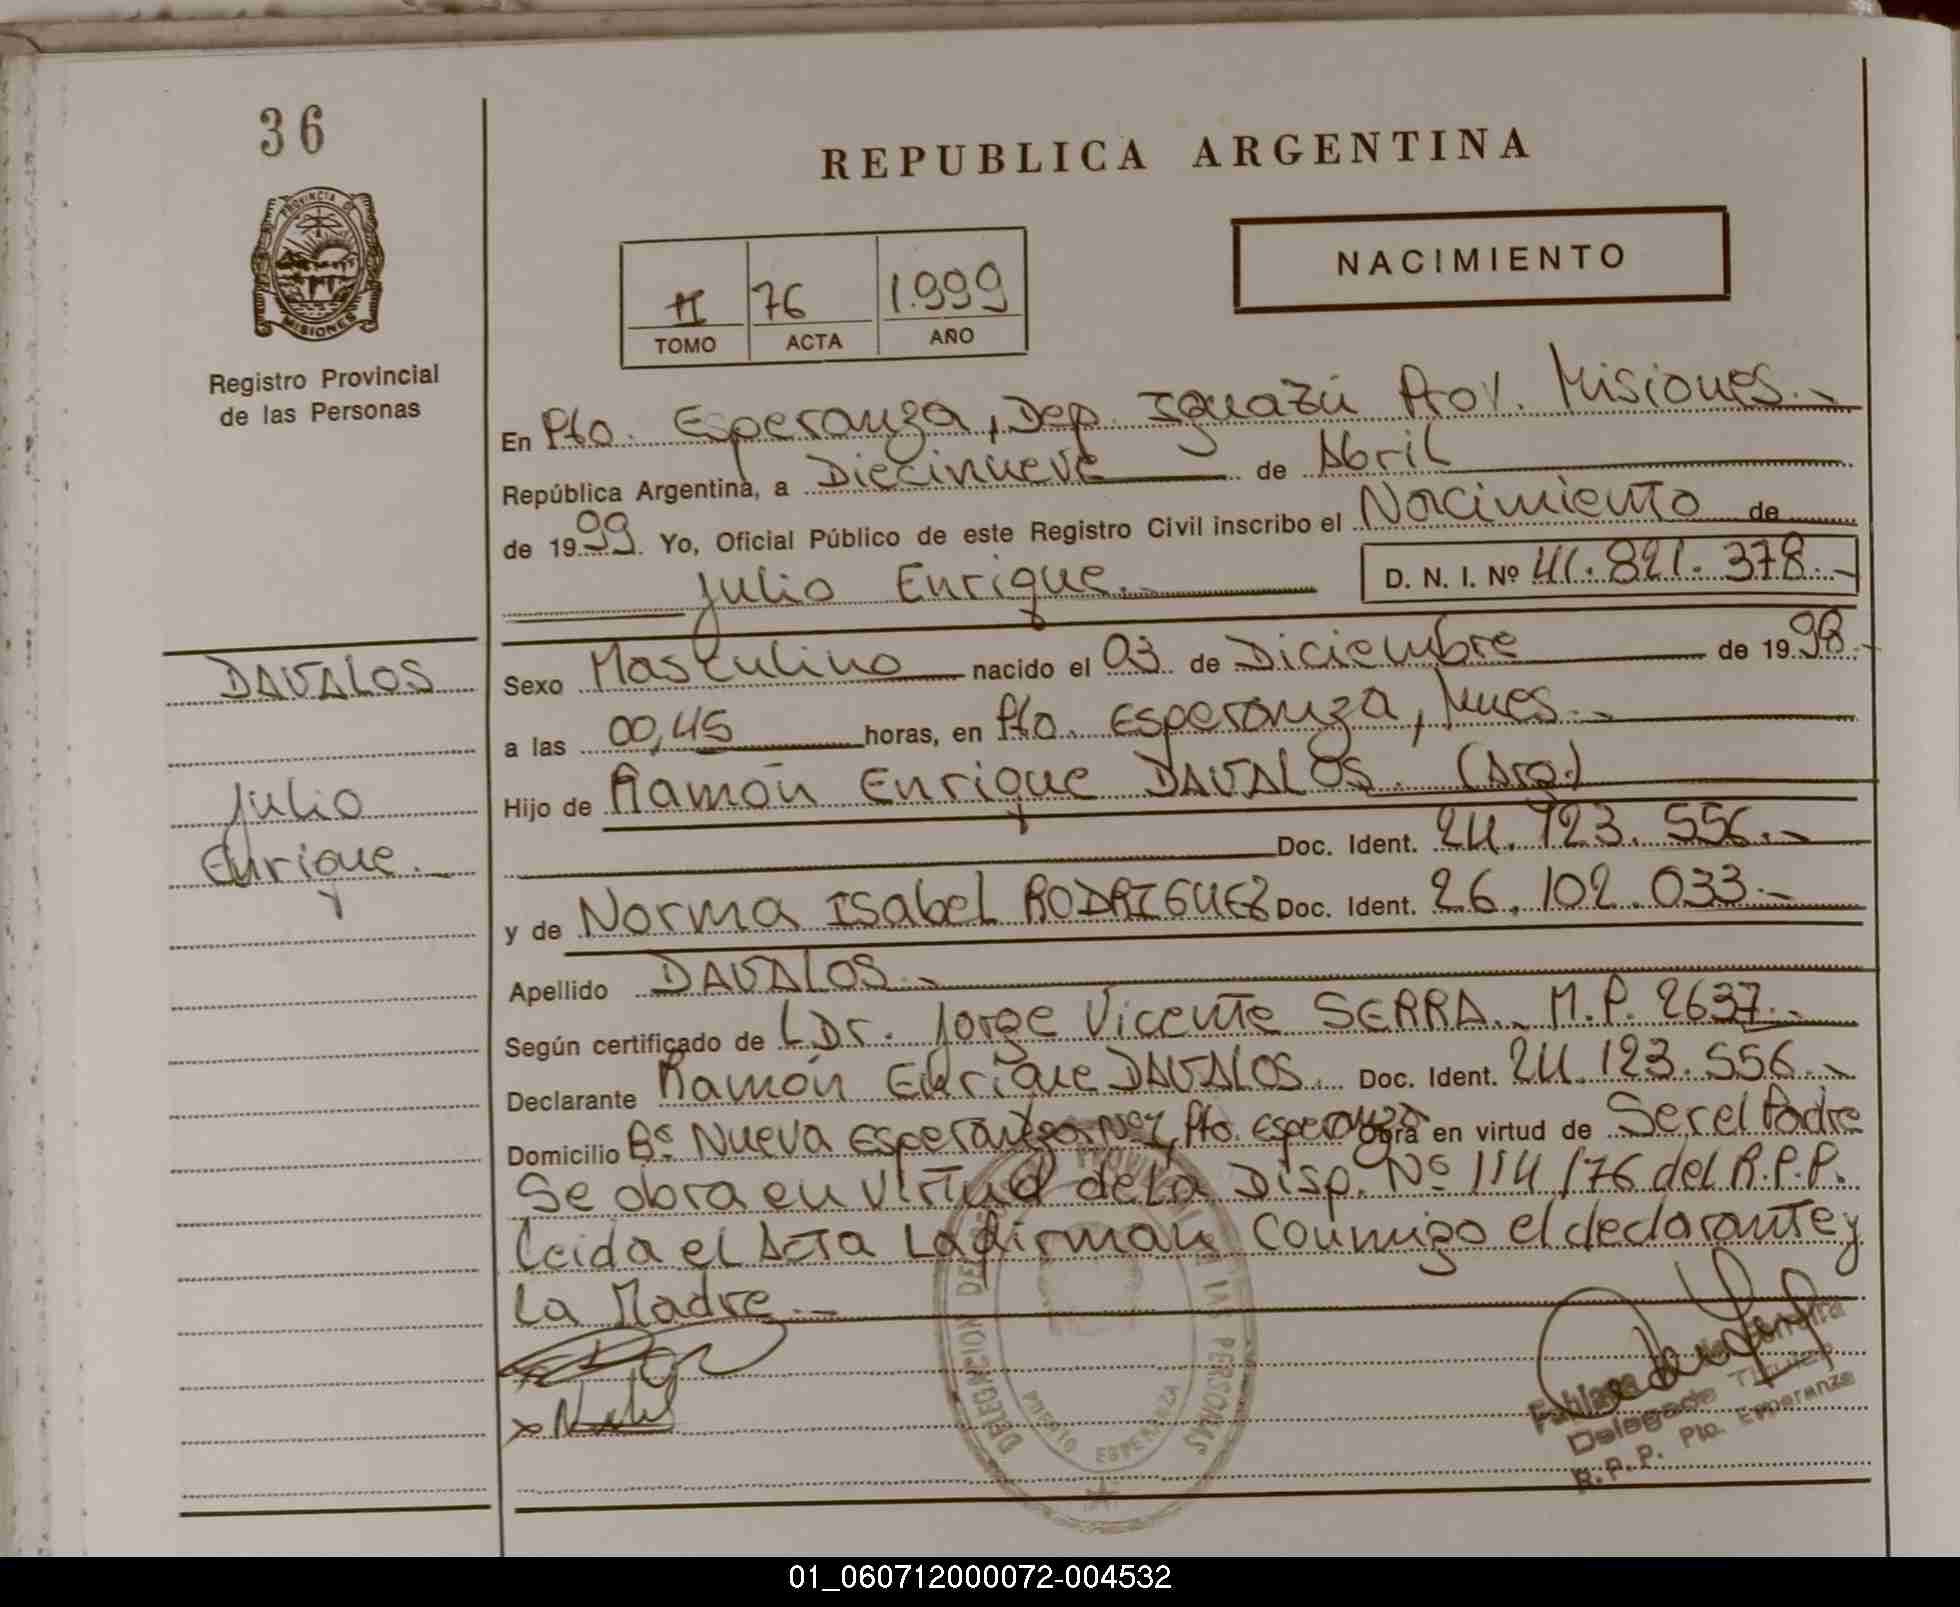 36
PROVINCIA DE
MISIONES
Registro Provincial
de las Personas
REPUBLICA ARGENTINA
NACIMIENTO
II 76 1.999
TOMO ACTA AÑO
En Pto. Esperanza, Dep. Iguazú Prov. Misiones.-
República Argentina, a Diecinueve de Abril
de 1999. Yo, Oficial Público de este Registro Civil inscribo el Nacimiento de
Julio Enrique.- D. N. I. Nº 41.821.378.-
DAVALOS
Julio
Enrique.-
Sexo Masculino nacido el 03 de Diciembre de 1998.-
a las 00,45 horas, en Pto. Esperanza, Mnes.-
Hijo de Ramón Enrique DAVALOS. (Arg.)
Doc. Ident. 24.123.556.-
y de Norma Isabel RODRIGUEZ Doc. Ident. 26.102.033.-
Apellido DAVALOS.-
Según certificado de Dr. Jorge Vicente SERRA.- M.P. 2637.-
Declarante Ramón Enrique DAVALOS. Doc. Ident. 24.123.556.-
Domicilio Bº Nueva Esperanza Pto. Esperanza Obra en virtud de Ser el Padre
Se obra en virtud de la Disp. Nº 114/76 del R.P.P.
Leida el Acta La firman Conmigo el declarante y
La Madre.-
DELEGACION DEL PROVINCIAL DE LAS PERSONAS
PUERTO ESPERANZA
Delegada Titular
R.P.P. Pto. Esperanza
01_060712000072-004532